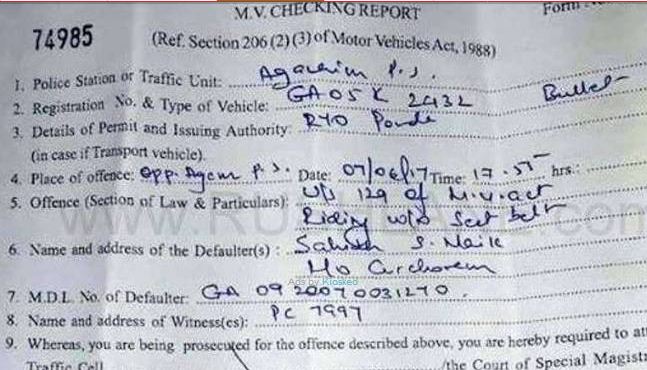 M.V. CHECKING REPORT
Form
74985
(Ref. Section 206 (2) (3) of Motor Vehicles Act, 1988)
1. Police Station or Traffic Unit: Agacaim P.S.
2. Registration No. & Type of Vehicle: GA 05 K 2432 Bullet
3. Details of Permit and Issuing Authority: RTO Ponda
(in case if Transport vehicle).
4. Place of offence: Opp. Agcm P.S. Date: 07/06/17 Time: 17.55 hrs.:
5. Offence (Section of Law & Particulars): U/s 129 of M.V. act
Riding w/o Seat belt
6. Name and address of the Defaulter(s) : S. Naik
Ads by Kiosked
7. M.D.L. No. of Defaulter: GA 09 20070031270.
8. Name and address of Witness(es): PC 7997
9. Whereas, you are being prosecuted for the offence described above, you are hereby required to
Traffic Cell /the Court of Special